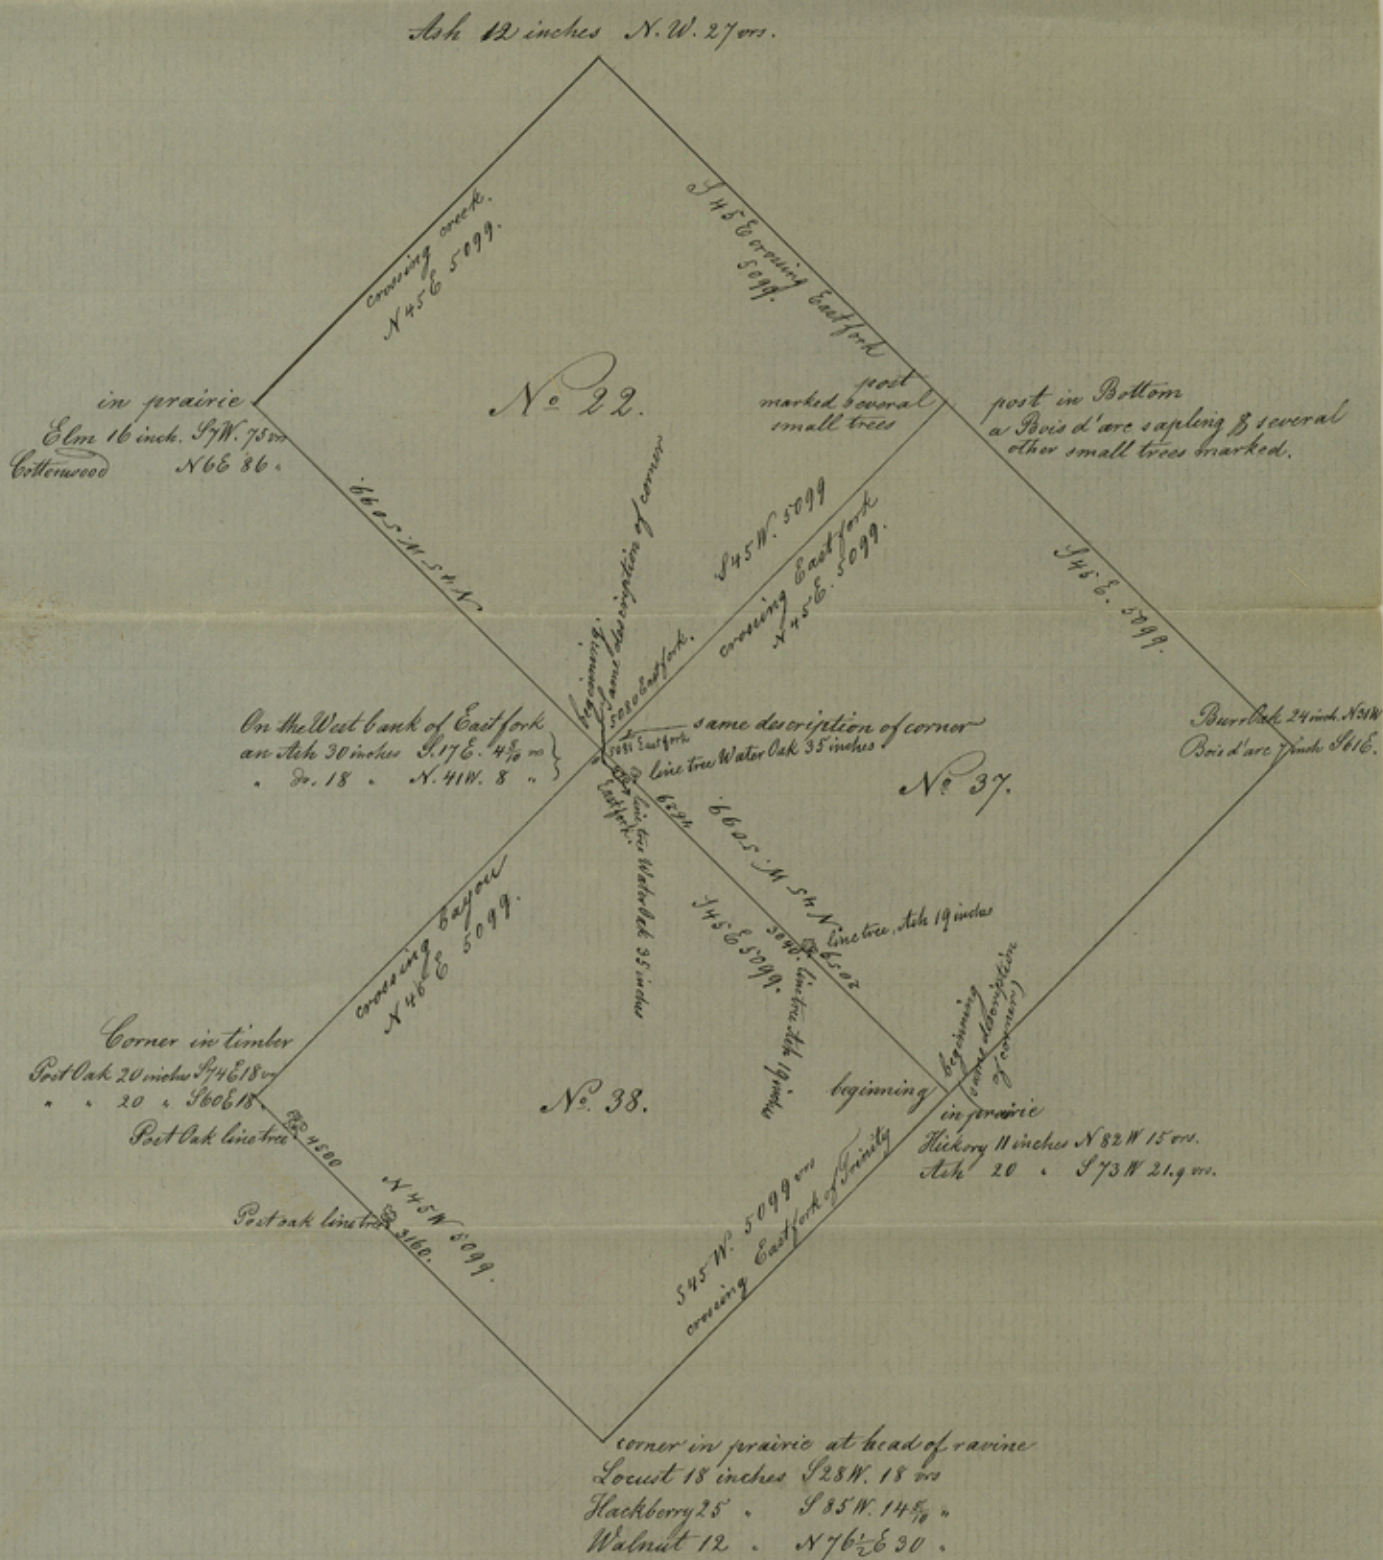 Ash 12 inches N. W. 27 vrs.
crossing creek.
N 45 E 5099.
S 45 E crossing East fork
5099.
No 22.
in prairie
Elm 16 inch. S7W. 75 vrs
Cottonwood N6E 86 "
post
marked & several
small trees
post in Bottom
a Bois d'arc sapling & several
other small trees marked.
N 45 W. 5099.
beginning.
same description of corner
S 45 W. 5099
crossing East fork
N 45 E. 5099.
S 45 E. 5099.
5080 East fork.
On the West bank of East fork
an Ash 30 inches S. 17 E. 4 5/10 vrs
" do. 18 " N. 41 W. 8 "
same description of corner
5081 East fork
line tree Water Oak 35 inches
Burr Oak 24 inch. N31W
Bois d'arc 7 inch S61E.
No 37.
East fork.
line tree Water Oak 35 inches
4639
N 45 W. 5099.
S 45 E 5099.
line tree, Ash 19 inches
2059
3040. line tree Ash 19 inches
crossing bayou
N 46 E 5099.
Corner in timber
Post Oak 20 inches S74E18 vrs
" " 20 " S60E18.
Post Oak line tree
4500
No. 38.
beginning
beginning
same description
of corner
in prairie
Hickory 11 inches N 82 W 15 vrs.
Ash 20 " S 73 W 21.9 vrs.
N 45 W 5099.
Post oak line tree
3160.
S 45 W. 5099 vrs
crossing East fork of Trinity
corner in prairie at head of ravine
Locust 18 inches S 28 W. 18 vrs
Hackberry 25 " S 85 W. 14 5/10 "
Walnut 12 " N 76 1/2 E 30 "